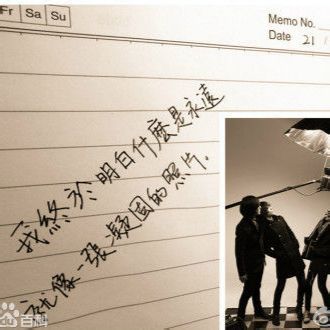 Fr Sa Su
Memo No.
Date 21 /
我終於明白什麼是永遠
就像一張凝固的照片.
百科